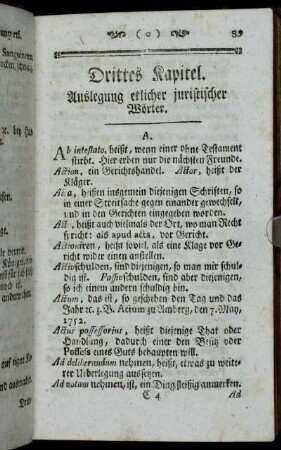 ( o ) 39
Drittes Kapitel.
Auslegung etlicher juristischer
Wörter.
A.
Ab intestato, heißt, wenn einer ohne Testament
stirbt. Hier erben nur die nächsten Freunde.
Action, ein Gerichtshandel. Actor, heißt der
Kläger.
Acta, heißen insgemein diejenigen Schriften, so
in einer Streitsache gegen einander gewechselt,
und in den Gerichten eingegeben worden.
Act, heißt auch vielmals der Ort, wo man Recht
spricht: als apud acta, vor Gericht.
Actioniren, heißt soviel, als eine Klage vor Ge-
richt wider einen anstellen.
Activschulden, sind diejenigen, so man mir schul-
dig ist. Passivschulden, sind aber diejenigen,
so ich einem andern schuldig bin.
Actum, das ist, so geschehen den Tag und das
Jahr ꝛc. z. B. Actum zu Amberg, den 7. May,
1752.
Actus possessorius, heißt diejenige That oder
Handlung, dadurch einer den Besitz oder
Posseß eines Guts behaupten will.
Ad deliberandum nehmen, heißt, etwas zu weite-
rer Ueberlegung aussetzen.
Ad notam nehmen, ist, ein Ding fleißig anmerken.
C 4 Ad